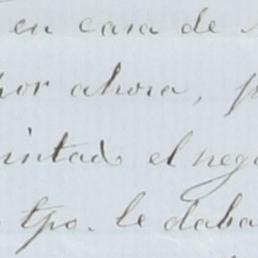 en casa de
por ahora, p
intad el neg
tpo. le daba